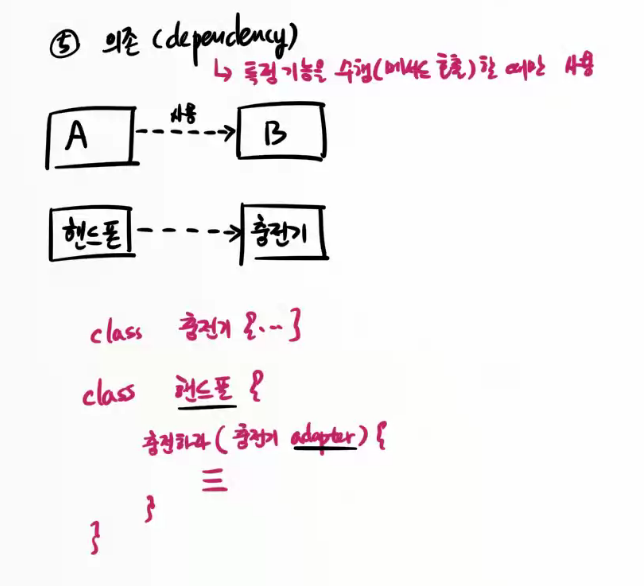 ⑤ 의존 (dependency)
↳ 특정 기능을 수행(메서드 호출)할 때만 사용
A 사용 B
핸드폰 충전기
class 충전기 {...}
class 핸드폰 {
충전하라 (충전기 adapter) {
}
}